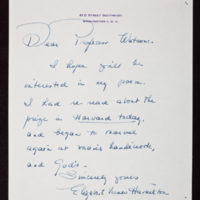 Dear Professor Watson -
I hope you'll be
interested in my poem.
I had re-read about the
prize in Harvard today,
and began to marvel
again at man's handiwork,
and God's.
Sincerely yours
Elizabeth Hamilton